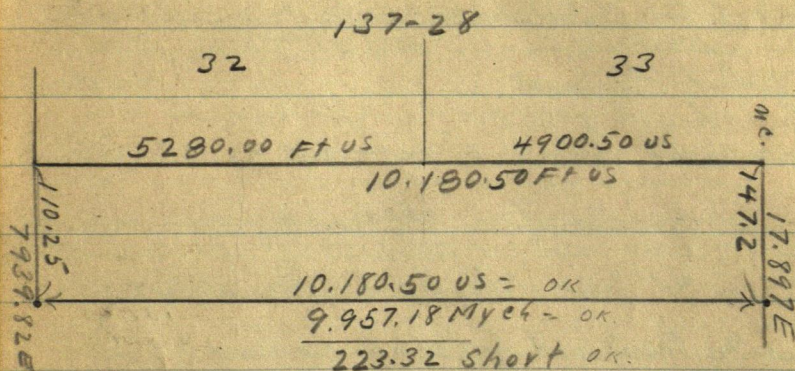 137-28
32
33
5280.00 Ft US
4900.50 US
m.c.
10.180.50 Ft US
110.25
7939.82E
147.2
17.897 E
10.180.50 US = OK
9.957.18 My ch = OK.
223.32 Short OK.